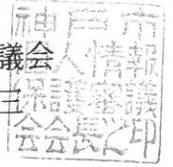 神戸市
議会
人情報
三
保護審議
会会長之印